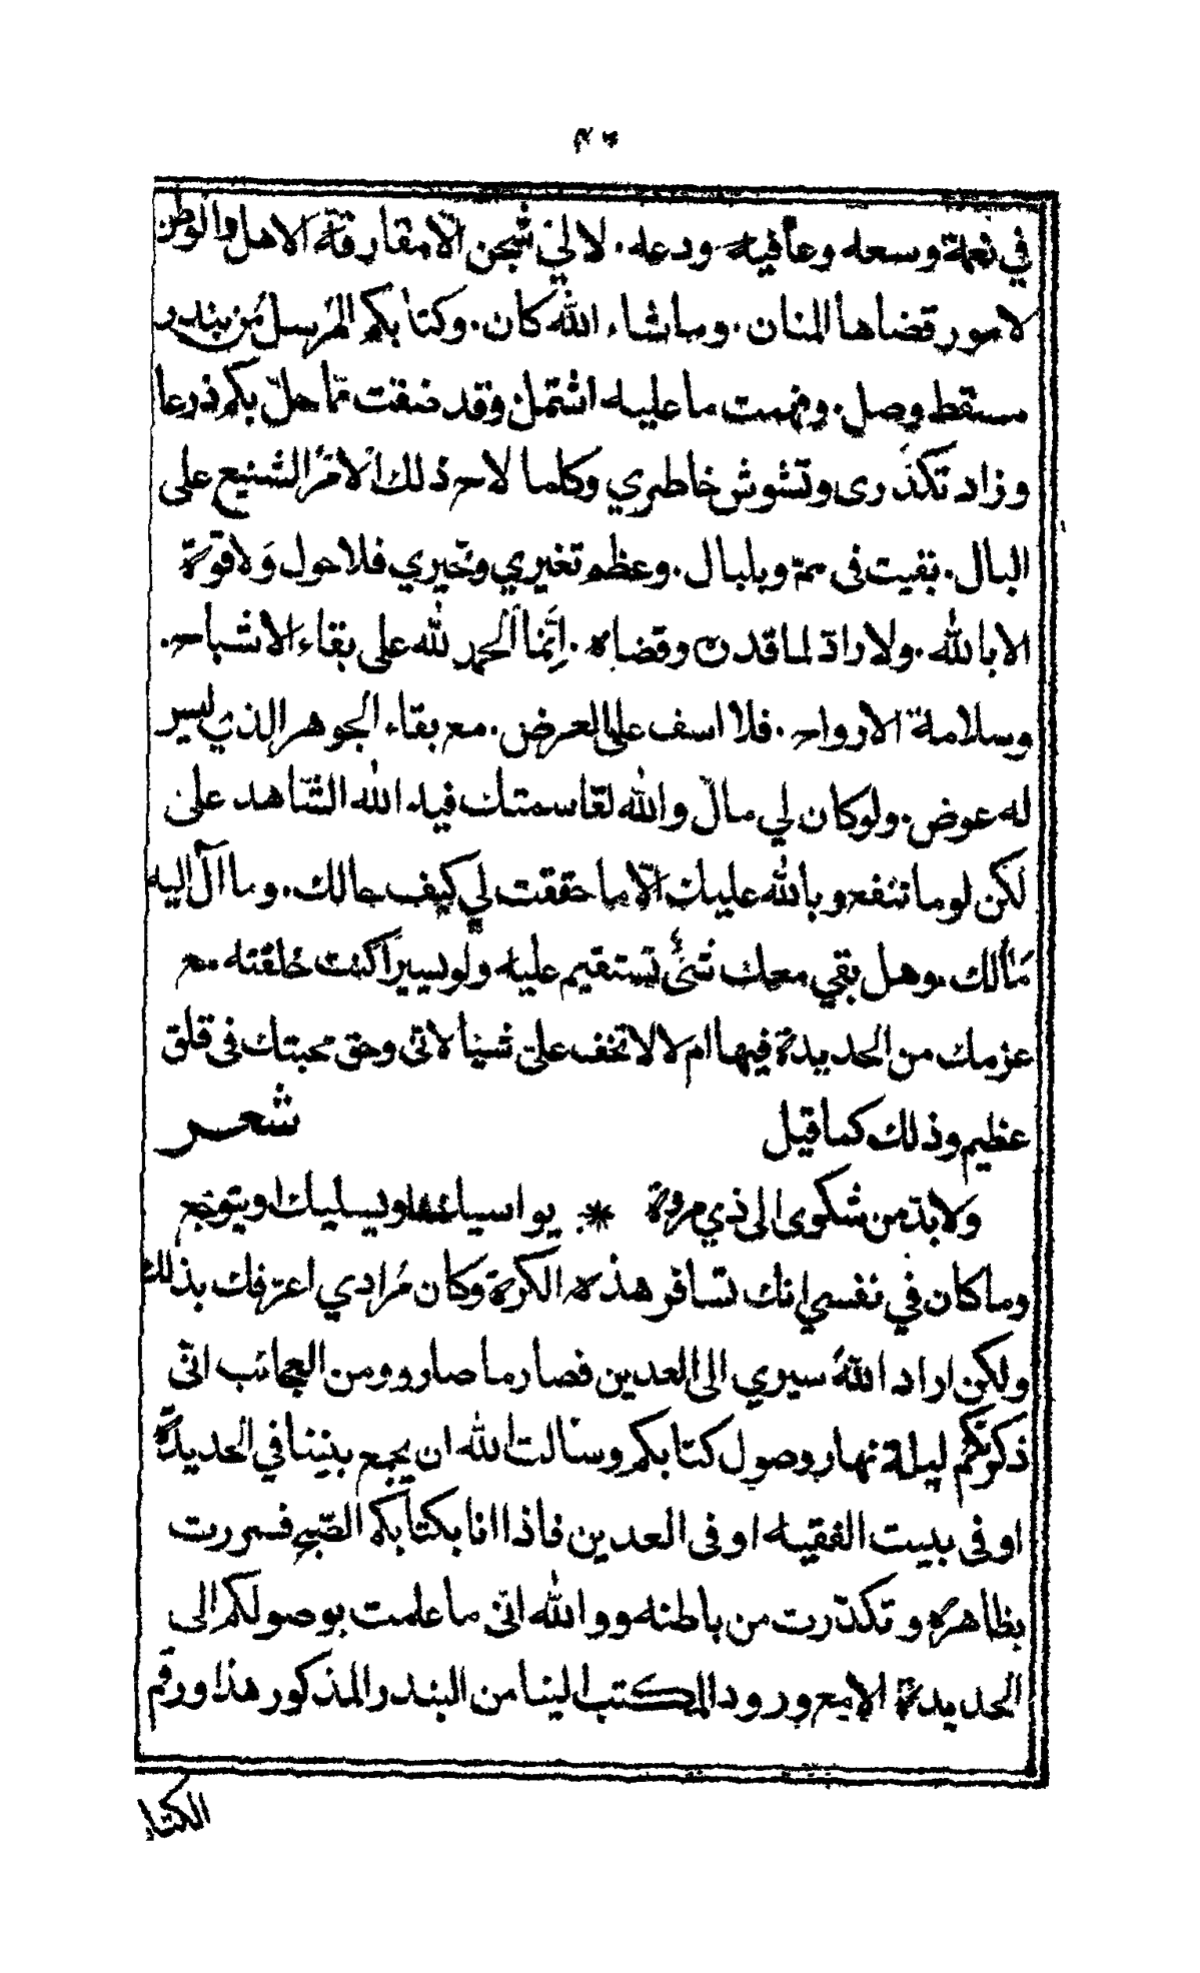 في نعمة وسعه وعافيه ودعه. لا لي شجن الّا مفارقة الاهل والوطن
لامور قضاها المنان. وما شاء الله كان. وكتابكم المرسل من بندر
مسقط وصل. وفهمت ما عليه اشتمل وقد ضقت ممّا حلّ بكم ذرعا
وزاد تكدّرى وتشوش خاطري وكلما لاح ذلك الامر الشنيع على
البال. بقيت فى همّ وبلبال. وعظم تغيري وتحيري فلا حول ولا قوة
الا بالله. ولا رادّ لما قدره وقضاه. انّما الحمد لله على بقاء الاشباح.
وسلامة الارواح. فلا اسف على العرض. مع بقاء الجوهر الذي ليس
له عوض. ولو كان لي مال والله لقاسمتك فيه الله الشاهد علىّ
لكن لوما تنفع وبالله عليك الّا ما حققت لي كيف حالك. وما آل اليه
مالك. وهل بقي معك شئ تستقيم عليه ولو يسيرا كنت خلفته مع
عزمك من الحديدة فيها ام لا لا تخف علىّ شيئا لانى وحق محبتك فى قلق
عظيم وذلك كما قيل
شعر
ولا بدّ من شكوى الى ذي مروة * يواسيك او يسليك او يتوجع
وما كان في نفسي انك تسافر هذه الكرة وكان مرادي اعرّفك بذلك
ولكن اراد الله سيري الى العدين فصار ما صار ومن العجائب انّى
ذكرتكم ليلة نهار وصول كتابكم وسالت الله ان يجمع بيننا في الحديدة
او فى بيت الفقيه او فى العدين فاذا انا بكتابكم الصّبح فسررت
بظاهره وتكدّرت من باطنه ووالله انّى ما علمت بوصولكم الى
الحديدة الا مع ورود المكتب الينا من البندر المذكور هذا ورقم
الكتا